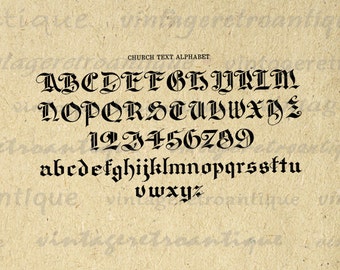 CHURCH TEXT ALPHABET
ABCDEFGHIJKLM
NOPQRSTUVWXYZ
1234567890
abcdefghijklmnopqrsſtu
vwxyz
vintageretroantique